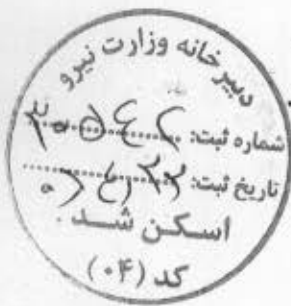 دبیرخانه وزارت نیرو
شماره ثبت:
تاریخ ثبت:
اسکن شد.
کد (۰۴)